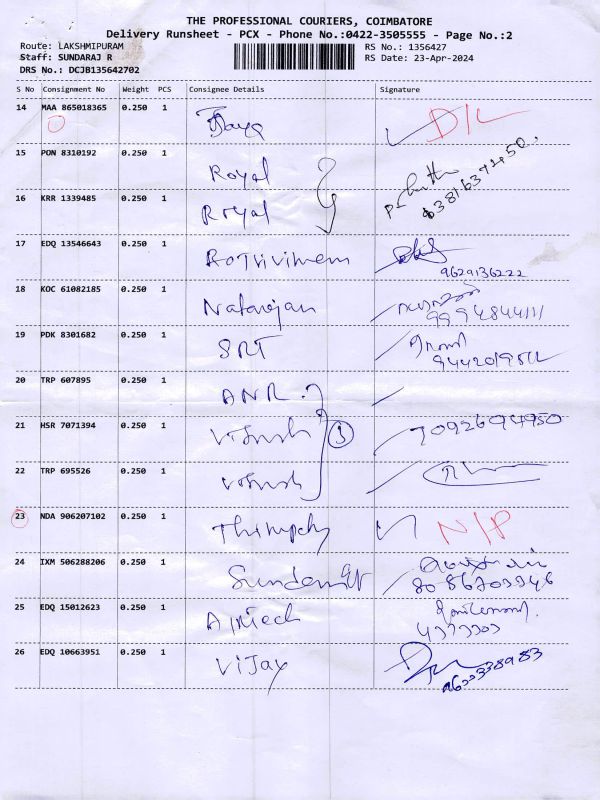 THE PROFESSIONAL COURIERS, COIMBATORE
Delivery Runsheet - PCX - Phone No.:0422-3505555 - Page No.:2
Route: LAKSHMIPURAM RS No.: 1356427
Staff: SUNDARAJ R RS Date: 23-Apr-2024
DRS No.: DCJB135642702
S No Consignment No Weight PCS Consignee Details Signature
14 MAA 865018365 0.250 1 Jaya D/L
15 PON 8310192 0.250 1 Royal
16 KRR 1339485 0.250 1 Royal
17 EDQ 13546643 0.250 1 9629136222
18 KOC 61082185 0.250 1 Natarajan 9994844111
19 PDK 8301682 0.250 1 SRT
20 TRP 607895 0.250 1 ANR.
21 HSR 7071394 0.250 1 3 7092694950
22 TRP 695526 0.250 1
23 NDA 906207102 0.250 1 N/P
24 IXM 506288206 0.250 1
25 EDQ 15012623 0.250 1
26 EDQ 10663951 0.250 1 Vijay